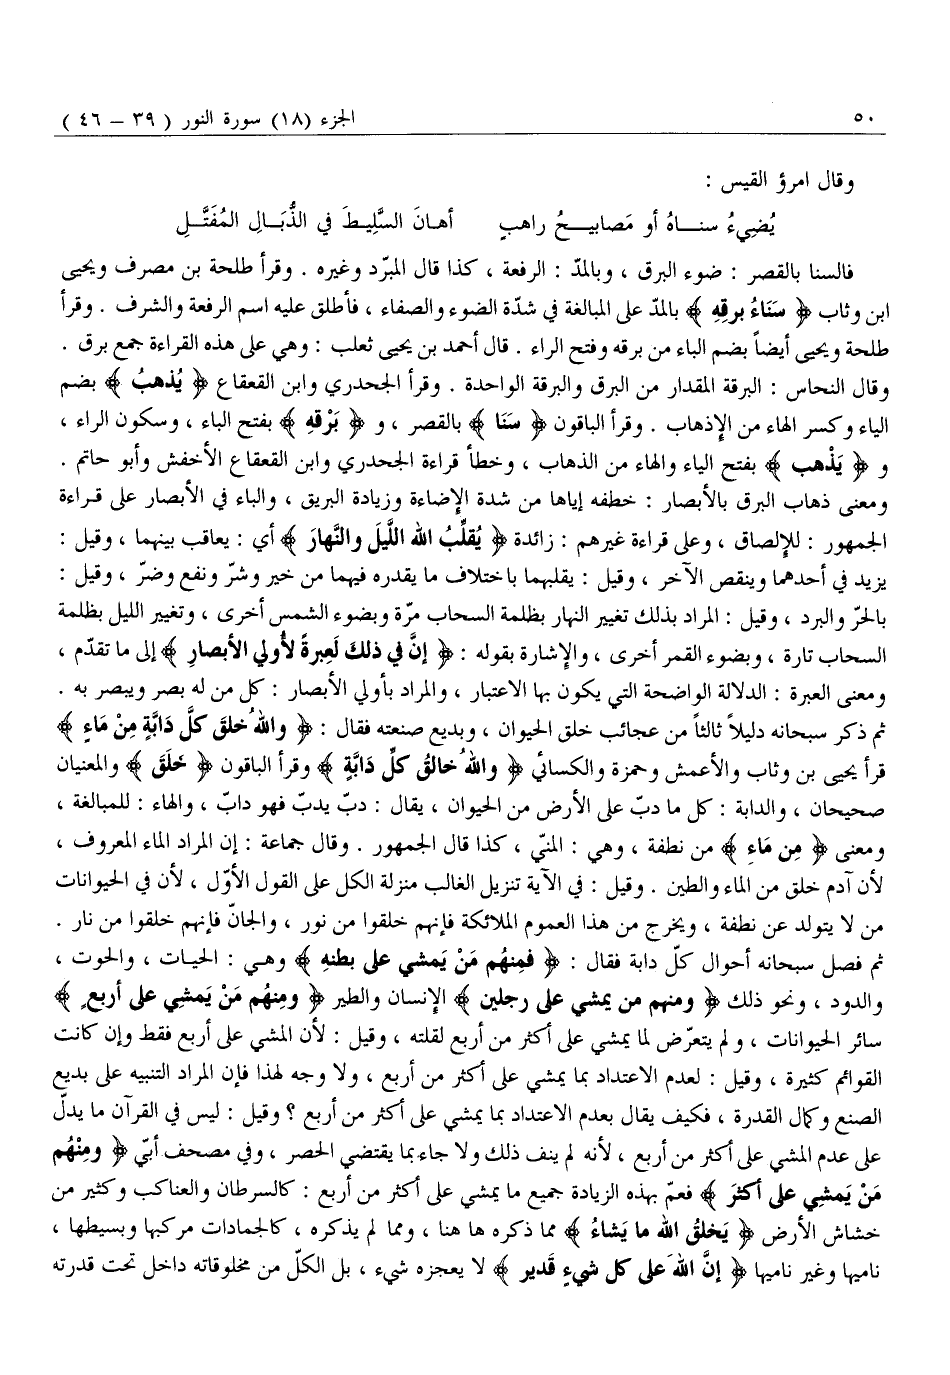 ٥٠ الجزء (١٨) سورة النور ( ٣٩ – ٤٦ )
وقال امرؤ القيس :
يُضِيءُ سنـاهُ أو مَصابيـحُ راهبٍ أهانَ السَّلِيطَ في الذُّبَـالِ المُفَتَّـلِ
فالسنا بالقصر : ضوء البرق ، وبالمدّ : الرفعة ، كذا قال المبرّد وغيره . وقرأ طلحة بن مصرف ويحيى
ابن وثاب ﴿ سَنَاءُ برقِهِ ﴾ بالمدّ على المبالغة في شدّة الضوء والصفاء ، فأطلق عليه اسم الرفعة والشرف . وقرأ
طلحة ويحيى أيضاً بضم الباء من برقه وفتح الراء . قال أحمد بن يحيى ثعلب : وهي على هذه القراءة جمع برق .
وقال النحاس : البرقة المقدار من البرق والبرقة الواحدة . وقرأ الجحدري وابن القعقاع ﴿ يُذهبُ ﴾ بضم
الياء وكسر الهاء من الإذهاب . وقرأ الباقون ﴿ سَنَا ﴾ بالقصر ، و ﴿ بَرْقهِ ﴾ بفتح الباء ، وسكون الراء ،
و ﴿ يَذْهب ﴾ بفتح الياء والهاء من الذهاب ، وخطأ قراءة الجحدري وابن القعقاع الأخفش وأبو حاتم .
ومعنى ذهاب البرق بالأبصار : خطفه إياها من شدة الإضاءة وزيادة البريق ، والباء في الأبصار على قراءة
الجمهور : للإلصاق ، وعلى قراءة غيرهم : زائدة ﴿ يُقلِّبُ الله اللَّيلَ والنَّهارَ ﴾ أي : يعاقب بينهما ، وقيل :
يزيد في أحدهما وينقص الآخر ، وقيل : يقلبهما باختلاف ما يقدره فيهما من خير وشرّ ونفع وضرّ ، وقيل :
بالحرّ والبرد ، وقيل : المراد بذلك تغيير النهار بظلمة السحاب مرّة وبضوء الشمس أخرى ، وتغيير الليل بظلمة
السحاب تارة ، وبضوء القمر أخرى ، والإشارة بقوله : ﴿ إنَّ في ذلكَ لَعِبرةً لأُولي الأبصارِ ﴾ إلى ما تقدّم ،
ومعنى العبرة : الدلالة الواضحة التي يكون بها الاعتبار ، والمراد بأولي الأبصار : كل من له بصر ويبصر به .
ثم ذكر سبحانه دليلاً ثالثاً من عجائب خلق الحيوان ، وبديع صنعته فقال : ﴿ واللهُ خلقَ كلَّ دَابَّةٍ مِنْ مَاءٍ ﴾
قرأ يحيى بن وثاب والأعمش وحمزة والكسائي ﴿ واللهُ خالقُ كلِّ دَابَّةٍ ﴾ وقرأ الباقون ﴿ خلَقَ ﴾ والمعنيان
صحيحان ، والدابة : كل ما دبّ على الأرض من الحيوان ، يقال : دبّ يدبّ فهو دابّ ، والهاء : للمبالغة ،
ومعنى ﴿ مِن مَاءٍ ﴾ من نطفة ، وهي : المنّي ، كذا قال الجمهور . وقال جماعة : إن المراد الماء المعروف ،
لأن آدم خلق من الماء والطين . وقيل : في الآية تنزيل الغالب منزلة الكل على القول الأوّل ، لأن في الحيوانات
من لا يتولد عن نطفة ، ويخرج من هذا العموم الملائكة فإنهم خلقوا من نور ، والجانّ فإنهم خلقوا من نار .
ثم فصل سبحانه أحوال كلّ دابة فقال : ﴿ فمِنهُم مَنْ يَمشي على بطنهِ ﴾ وهـي : الحيـات ، والحوت ،
والدود ، ونحو ذلك ﴿ ومنهم من يمشي على رجلين ﴾ الإنسان والطير ﴿ ومِنهُم مَنْ يَمشِي على أربع ٍ ﴾
سائر الحيوانات ، ولم يتعرّض لما يمشي على أكثر من أربع لقلته ، وقيل : لأن المشي على أربع فقط وإن كانت
القوائم كثيرة ، وقيل : لعدم الاعتداد بما يمشي على أكثر من أربع ، ولا وجه لهذا فإن المراد التنبيه على بديع
الصنع وكمال القدرة ، فكيف يقال بعدم الاعتداد بما يمشي على أكثر من أربع ؟ وقيل : ليس في القرآن ما يدلّ
على عدم المشي على أكثر من أربع ، لأنه لم ينف ذلك ولا جاء بما يقتضي الحصر ، وفي مصحف أبيّ ﴿ ومِنْهُم
مَنْ يَمشِي على أكثرَ ﴾ فعمّ بهذه الزيادة جميع ما يمشي على أكثر من أربع : كالسرطان والعناكب وكثير من
خشاش الأرض ﴿ يَخلقُ الله ما يَشاءُ ﴾ مما ذكره ها هنا ، ومما لم يذكره ، كالجمادات مركبها وبسيطها ،
ناميها وغير ناميها ﴿ إنَّ اللهَ على كل شيءٍ قَدير ﴾ لا يعجزه شيء ، بل الكلّ من مخلوقاته داخل تحت قدرته